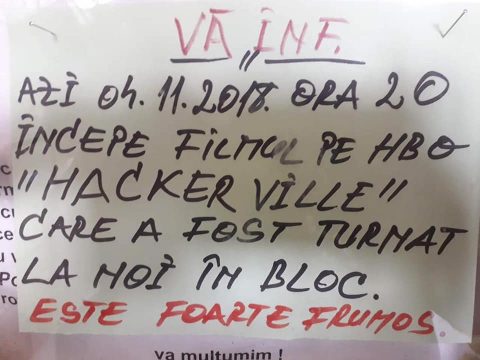 VĂ ÎNF.
AZI 04.11.2018. ORA 20
ÎNCEPE FILMUL PE HBO
"HACKERVILLE"
CARE A FOST TURNAT
LA NOI ÎN BLOC.
ESTE FOARTE FRUMOS.
va multumim !